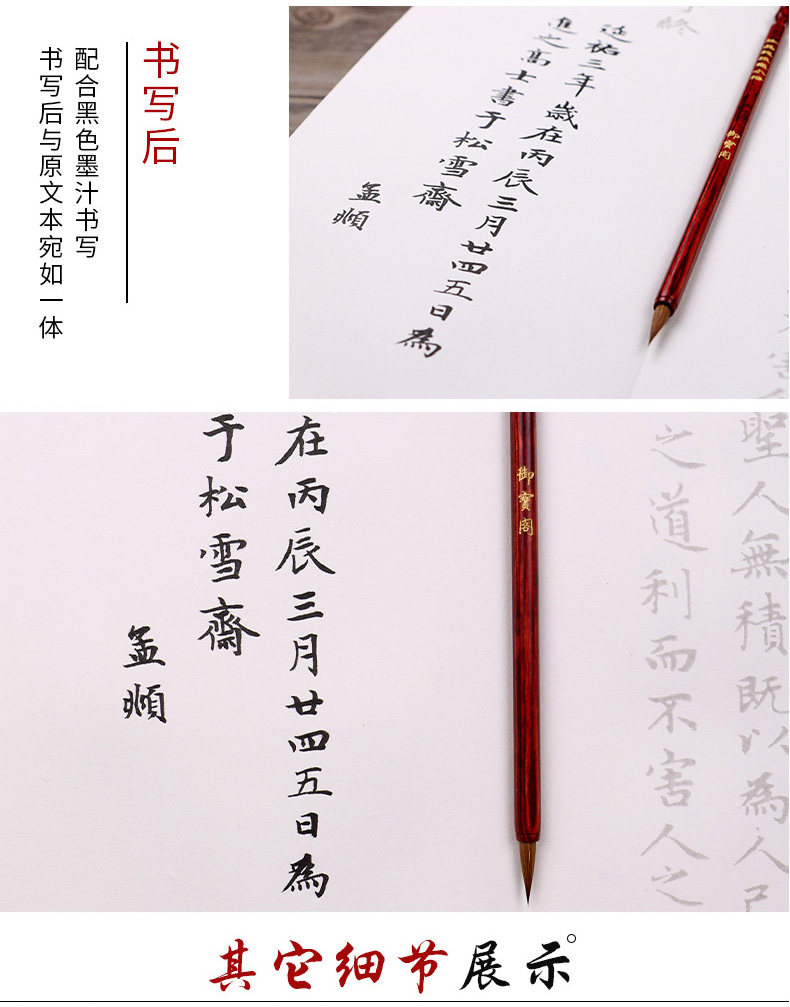 书写后
配合黑色墨汁书写
书写后与原文本宛如一体
御寶閣
延祐三年歲在丙辰三月廿四五日為
進之高士書于松雪齋
孟頫
聖人無積既以為人己
之道利而不害人之
御寶閣
在丙辰三月廿四五日為
于松雪齋
孟頫
其它细节展示